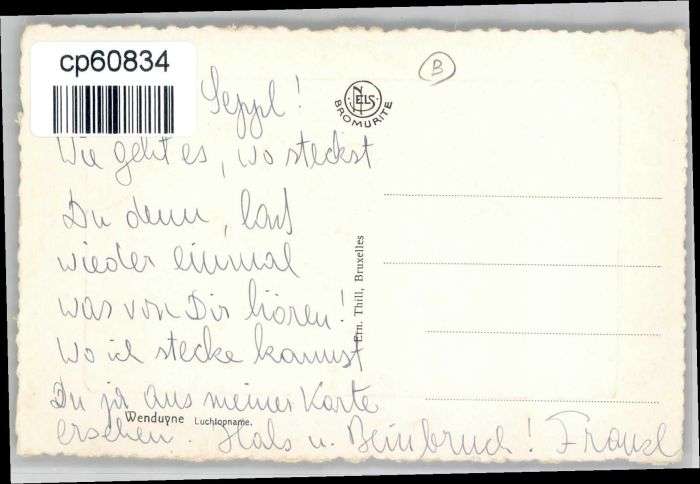 cp60834
B
Seppl!
NELS
BROMURITE
Wie geht es, wo steckst
Du denn, laß
wieder einmal
was von Dir hören!
Wo ich stecke kannst
Du ja aus meiner Karte
ersehen. Hals u. Beinbruch! Franzl
Ern. Thill, Bruxelles
Wenduyne Luchtopname.